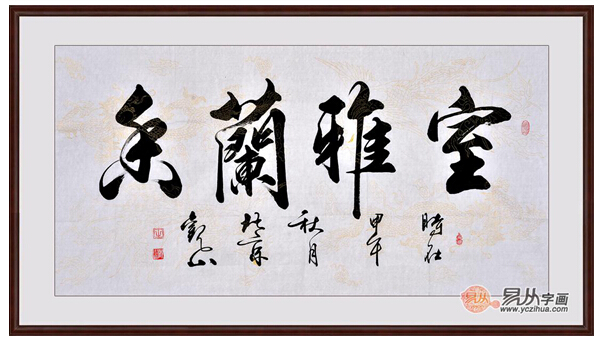 室雅蘭香
時在
甲午
秋月
於京
觀山
易从 易从字画
www.yczihua.com